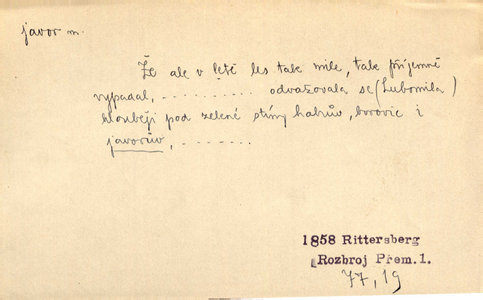 javor m.
Že ale v létě les tak mile, tak příjemně
vypadal, .......... odvažovala se (Lubomila)
hlouběji pod zelené stíny habrův, borovic i
javorův, ........
1858 Rittersberg
Rozbroj Přem. 1.
77, 19